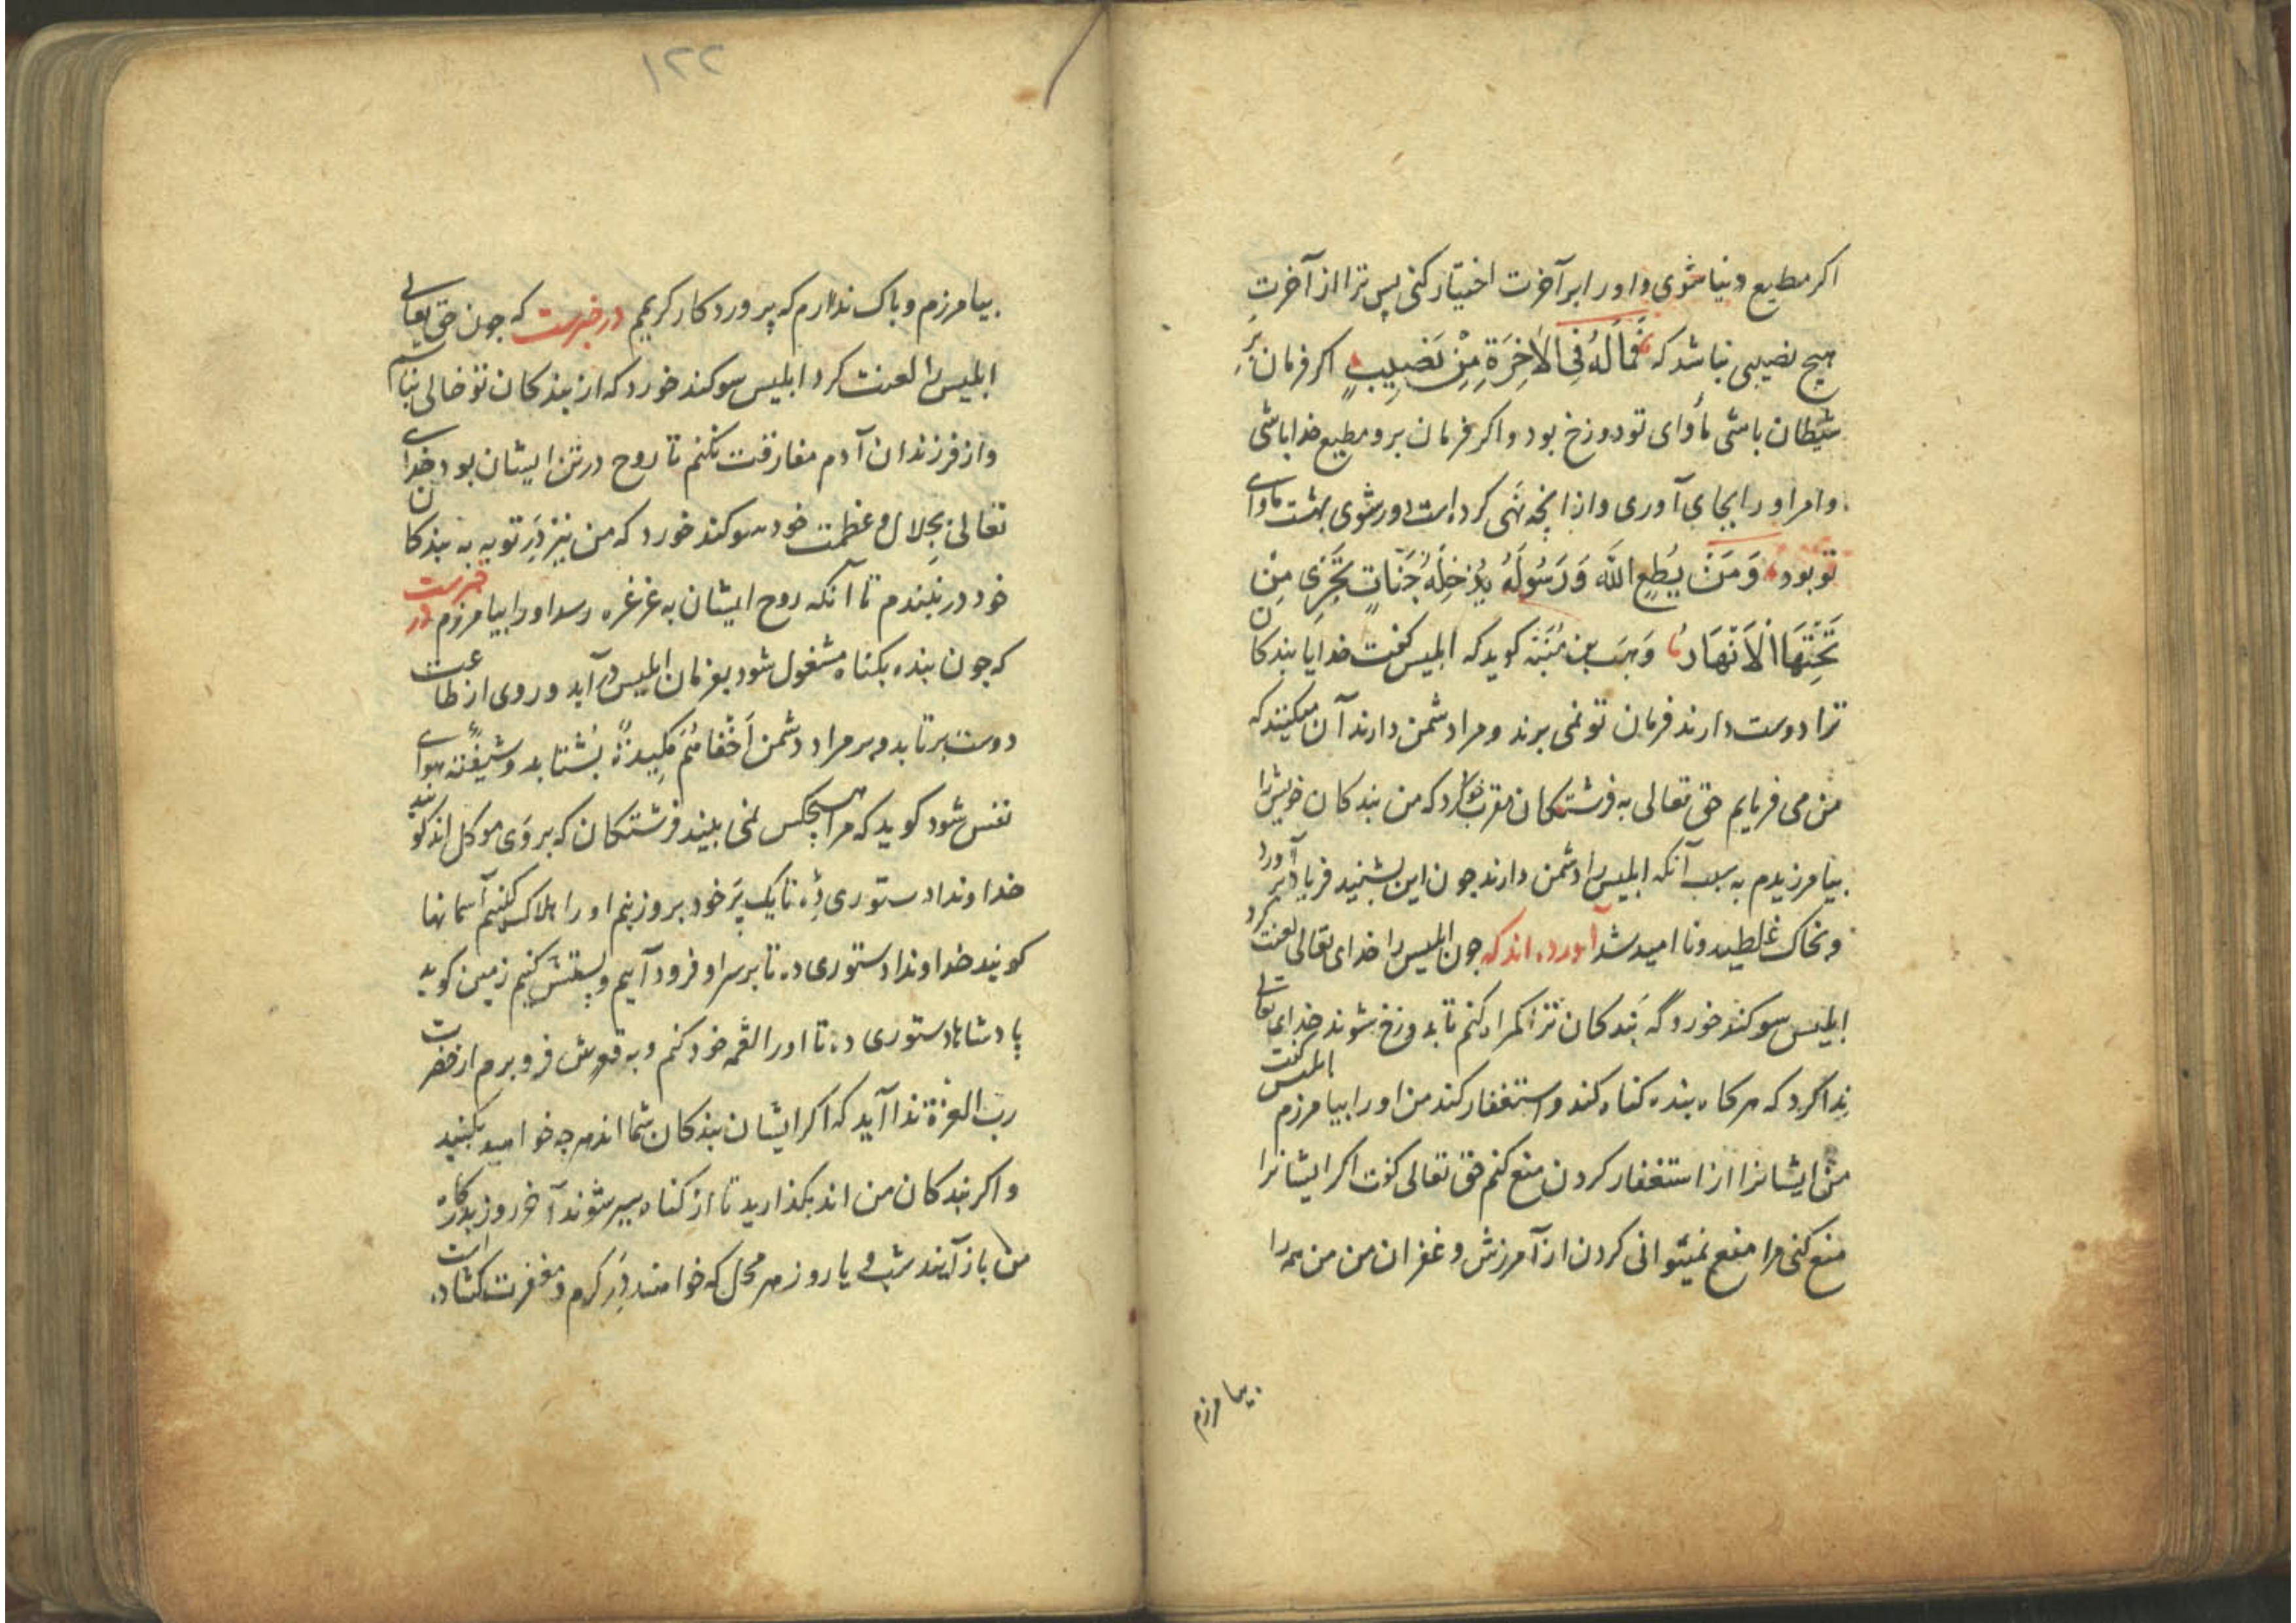 اکر مطیع دنیا شوی و اورا بر آخرت اختیار کنی پس ترا از آخرت
هیچ نصیبی نباشد که فَمَالَهُ فِی الْاٰخِرَةِ مِنْ نَصِیبٍ اکر فرمان بر
شیطان باشی مأوای تو دوزخ بود و اکر فرمان بر و مطیع خدا باشی
و امر اورا بجای آوری و از آنچه نهی کرده است دور شوی بهشت ماوای
تو بود وَمَنْ یُطِعِ اللّٰهَ وَرَسُولَهُ یُدْخِلْهُ جَنَّاتٍ تَجْرِی مِنْ
تَحْتِهَا الْاَنْهَارُ وهب بن منبّه کوید که ابلیس کفت خدایا بندکان
ترا دوست دارند فرمان تو نمی برند و مرا دشمن دارند آن میکنند که
من می فرمایم حق تعالی به فرشتکان مقرب خود کرد که من بندکان خویش را
بیامرزیدم به سبب آنکه ابلیس را دشمن دارند جون این بشنید فریاد بر آورد
و بخاک غلطید و نا امید شد آورده اند که جون ابلیس را خدای تعالی لعنت کرد
ابلیس سوکند خورد که بندکان ترا کمراه کنم تا بدوزخ شوند خدای تعالی
ندا کرد که هر کاه بنده کناه کند و استغفار کند من او را بیامرزم ابلیس کفت
من ایشانرا از استغفار کردن منع کنم حق تعالی کفت اکر ایشانرا
منع کنی مرا منع نمیتوانی کردن از آمرزش و غفران من من همه را
بیامرزم
۱۲۲
بیامرزم و باک ندارم که پروردکار کریمم در خبرست که جون حق تعالی
ابلیس را لعنت کرد ابلیس سوکند خورد که از بندکان تو خالی نباشم
و از فرزندان آدم مفارقت نکنم تا روح در تن ایشان بود خدای
تعالی بجلال و عظمت خود سوکند خورد که من نیز در توبه به بندکان
خود در نبندم تا آنکه روح ایشان به غرغره رسد اورا بیامرزم در خبرست
که جون بنده بکناه مشغول شود بفرمان ابلیس در آید و روی از طاعت
دوست بر تابد و بر مراد دشمن بشتابد و شیفتهٔ هوای
نفس شود کوید که مرا هیچکس نمی بیند فرشتکان که بر وی موکل اند کویند
خداوندا دستوری ده تا یک پر خود بروزنیم اورا هلاک کنیم آسمانها
کویند خداوندا دستوری ده تا بر سر او فرود آییم و پستش کنیم زمین کوید
پادشاها دستوری ده تا اورا لقمه خود کنم و به قعرش فرو برم از حضرت
رب العزة ندا آید که اکر ایشان بندکان شما اند هر چه خواهید بکنید
و اکر بندکان من اند بکذارید تا از کناه سیر شوند آخر روز بدرکاه
من باز آیند شب و یا روز هر محل که خواهند در کرم و مغفرت کشاده است